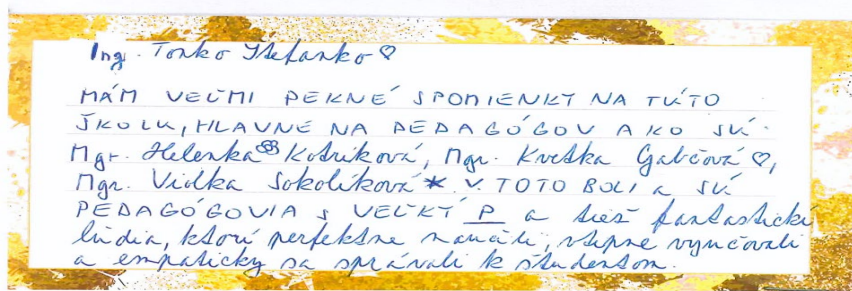 Ing. Tonko Štefanko ♡
MÁM VEĽMI PEKNÉ SPOMIENKY NA TÚTO
ŠKOLU, HLAVNE NA PEDAGÓGOV AKO SÚ.
Mgr. Helenka Kotríková, Mgr. Kvetka Gabčová ♡,
Mgr. Violka Sokolíková * V. TOTO BOLI a SÚ
PEDAGÓGOVIA s VEĽKÝ P a tiež fantastickí
ľudia, ktorí perfektne naučili, vtipne vyučovali
a empaticky sa správali k študentom.